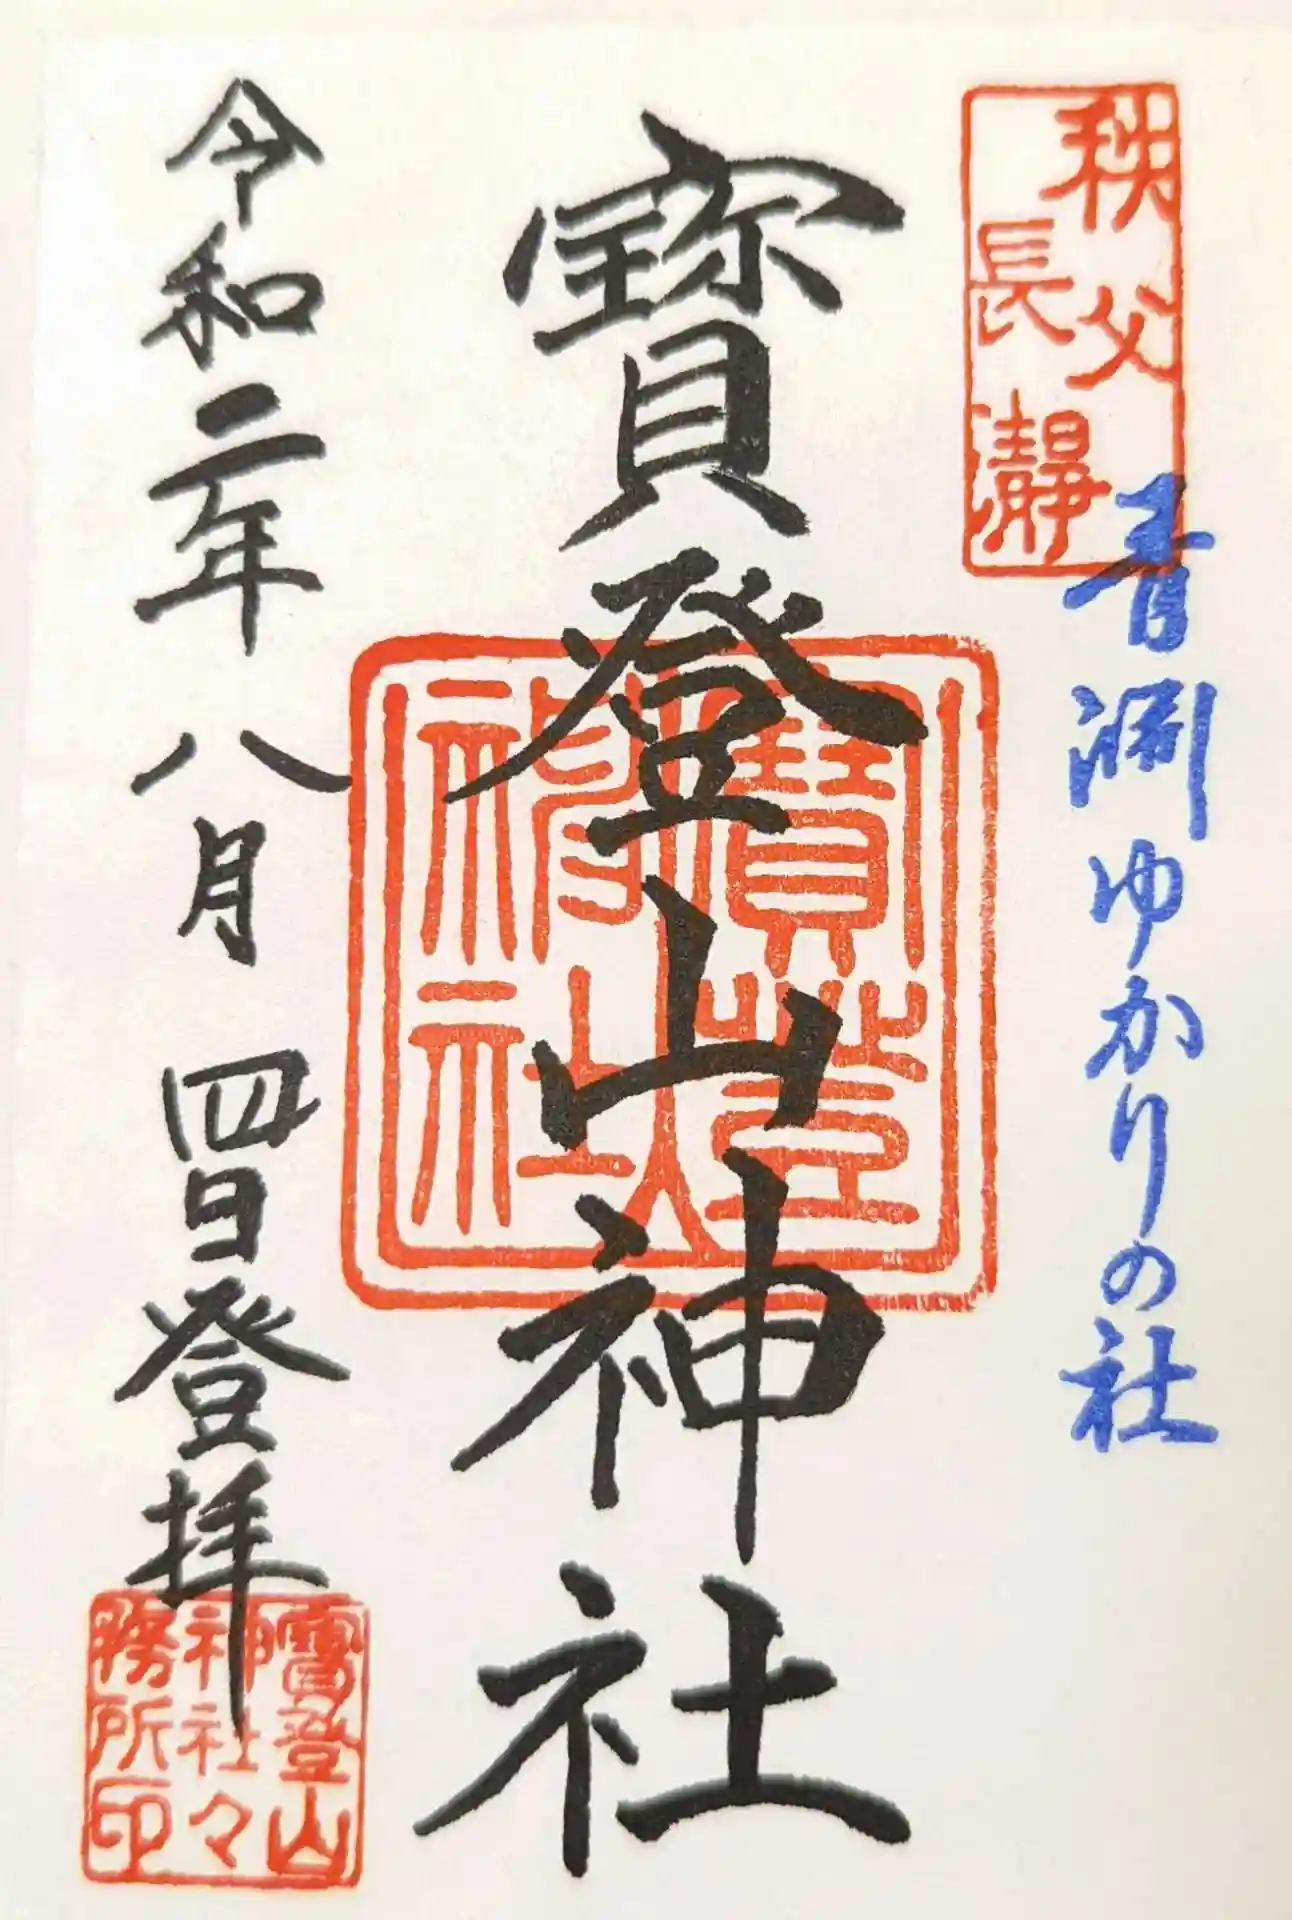 秩父
長瀞
青淵ゆかりの社
寳登山神社
寳登
山
神社
令和二年八月四日登拝
寳登山
神社々
務所印